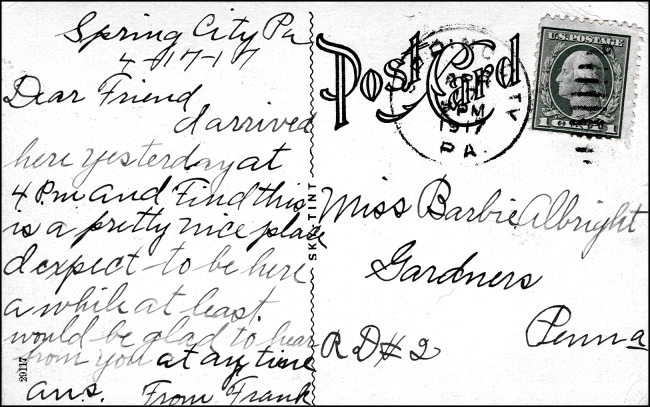 Spring City Pa
4-17-17
Dear Friend
I arrived
here yesterday at
4 P.m and Find this
is a pretty nice place
I expect to be here
a while at least.
would be glad to hear
from you at any time
ans. From Frank
29117
SKYTINT
Post Card
PM
1917
PA.
U.S. POSTAGE
1 CENT 1
Miss Barbie Albright
Gardners
Penna
R D # 2